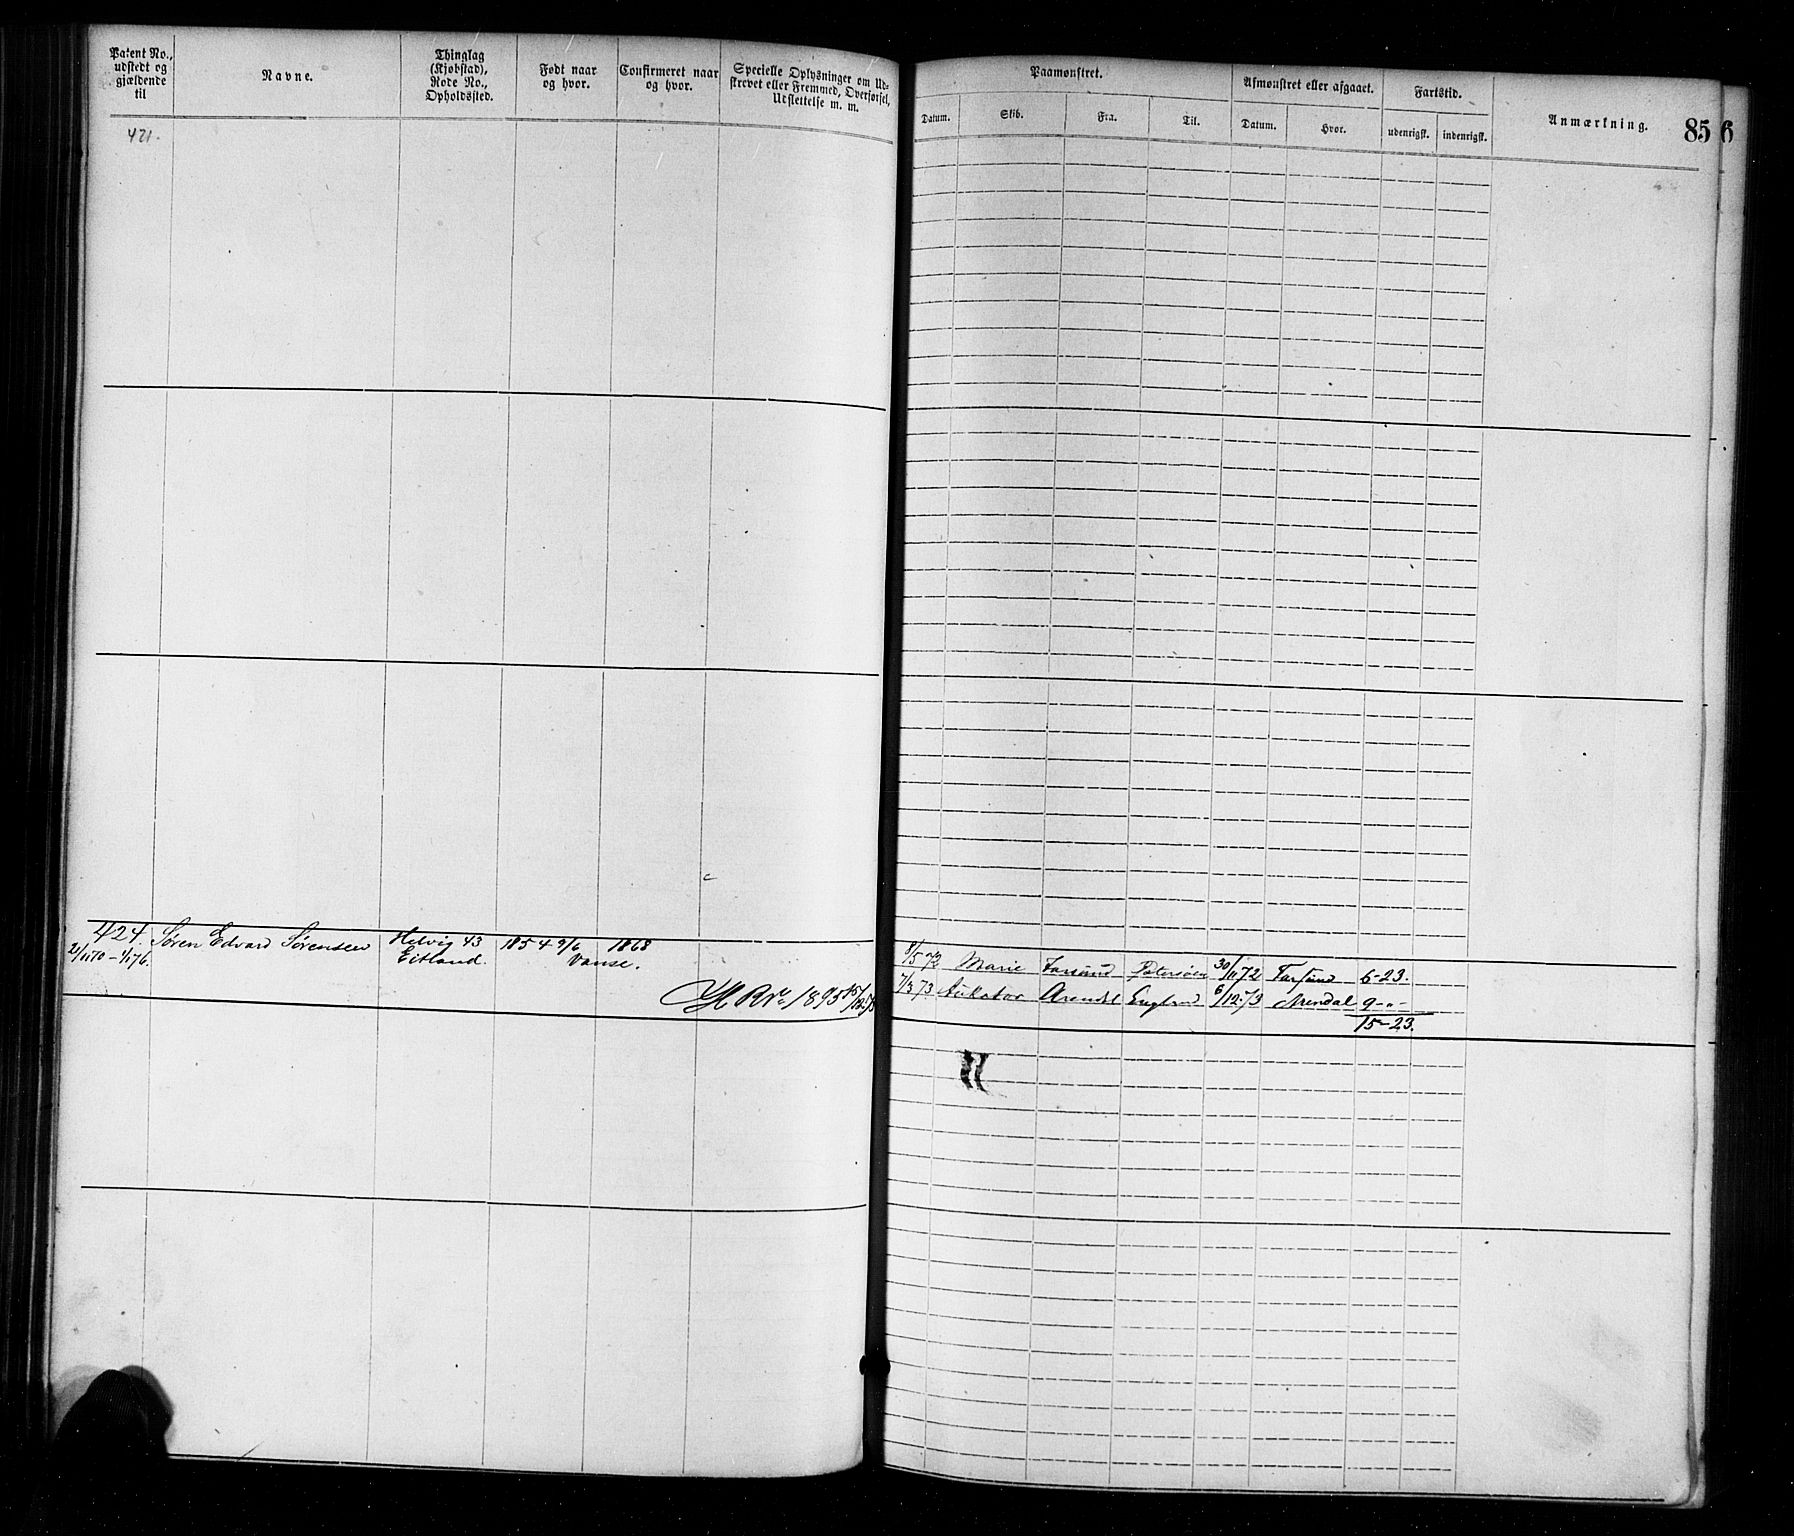 Patent No., udstedt og gjældende til
Navne.
Thinglag (Kjøbstad), Rode No., Opholdssted.
Født naar og hvor.
Confirmeret naar og hvor.
Specielle Oplysninger om Udskrevet eller Fremmed, Overførsel, Udslettelse m. m.
421.
424. Søren Edvard Sørensen Helvig 43 1854 9/6 1868
Eitland. Vanse.
H R No 1895
Paamønstret.
Afmønstret eller afgaaet.
Fartstid.
Datum. Skib. Fra. Til. Datum. Hvor. udenrigsk. indenrigsk.
Anmærkning.
85 6
8/5 72 Marie Farsund 30/11 72 Farsund 6-23.
7/3 73 Arendal England 6/12 73 Arendal 9-"-
15-23.